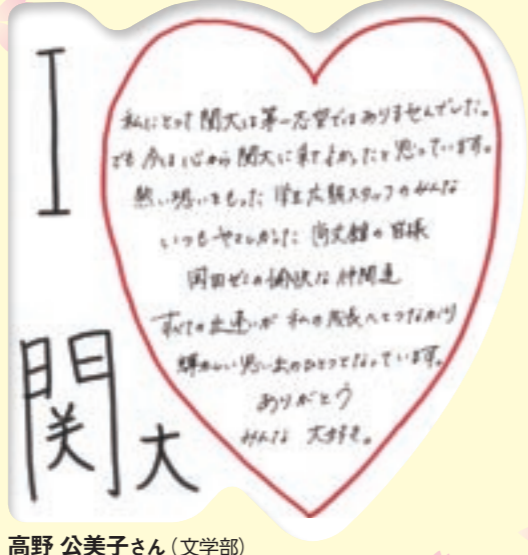 I
関大
私にとって関大は第一志望ではありませんでした。
でも今は心から関大に来てよかったと思っています。
熱い想いをもった学生広報スタッフのみんな
いつもやさしかった 尚文館の皆様
岡田ゼミの愉快な仲間達
すべての出逢いが私の成長へとつながり
輝かしい思い出のひとつとなっています。
ありがとう
みんな 大好き。
高野 公美子さん（文学部）